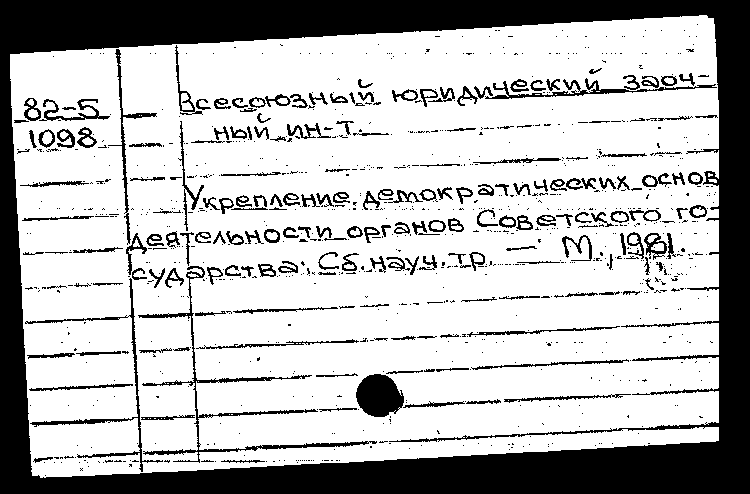 82-5
1098
Всесоюзный юридический заоч-
ный ин-т.
Укрепление демократических основ
деятельности органов Советского го-
сударства: Сб. науч. тр. — М., 1981.